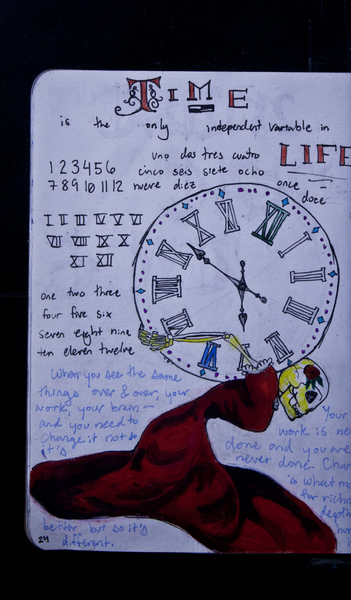 TIME
is the only independent variable in
LIFE
uno dos tres cuatro
1 2 3 4 5 6 cinco seis siete ocho
7 8 9 10 11 12 nueve diez once
doce
I II III IV V VI
VII VIII IX X
XI XII
one two three
four five six
seven eight nine
ten eleven twelve
When you see the same
things over & over, your
work, your brain —
and you need to
change it not so
it's
better but so it's
different.
Your
work is ne
done and you are
never done.
is what m
for richn
depth
24